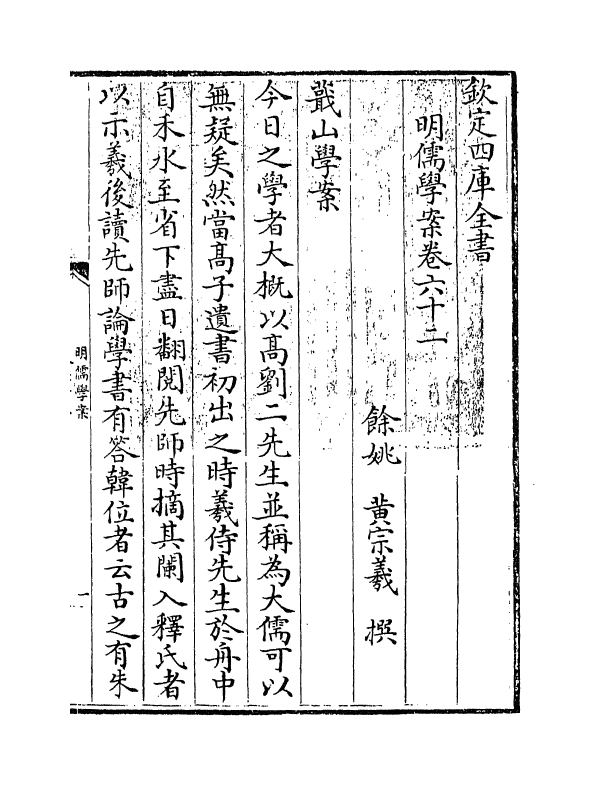 欽定四庫全書
明儒學案卷六十二
餘姚 黃宗羲 撰
蕺山學案
今日之學者大概以髙劉二先生並稱為大儒可以
無疑矣然當髙子遺書初出之時羲侍先生於舟中
自禾水至省下盡日翻閱先師時摘其闌入釋氏者
以示羲後讀先師論學書有答韓位者云古之有朱
明儒學案
一